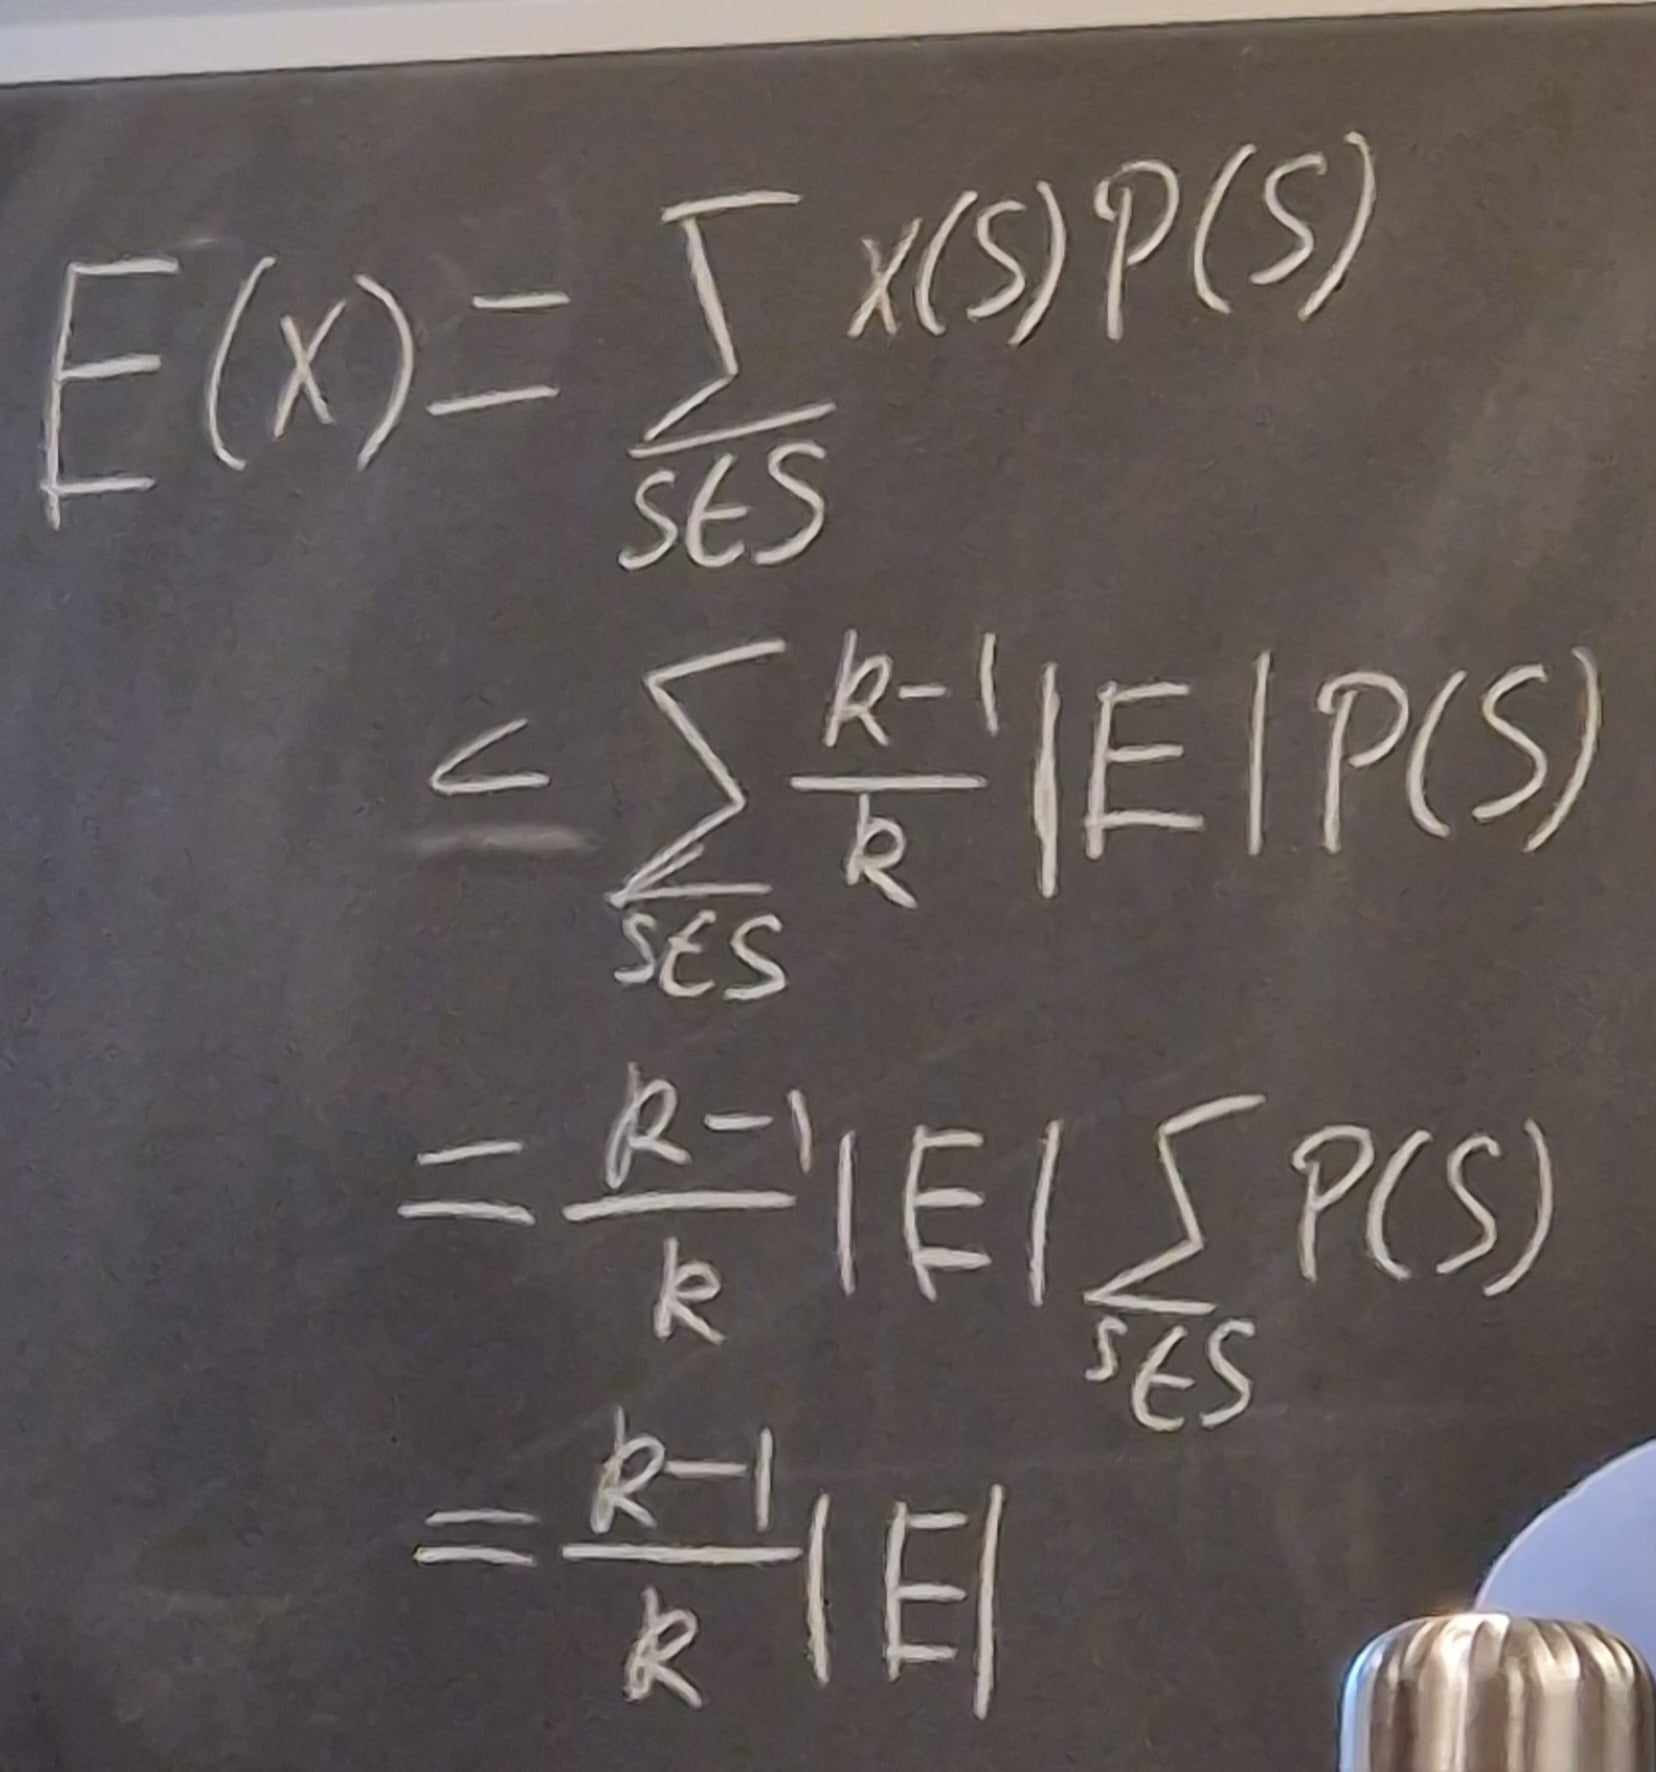 E(X) = ∑_{s∈S} X(s) P(s)
< ∑_{s∈S} \frac{k-1}{k} |E| P(s)
= \frac{k-1}{k} |E| ∑_{s∈S} P(s)
= \frac{k-1}{k} |E|